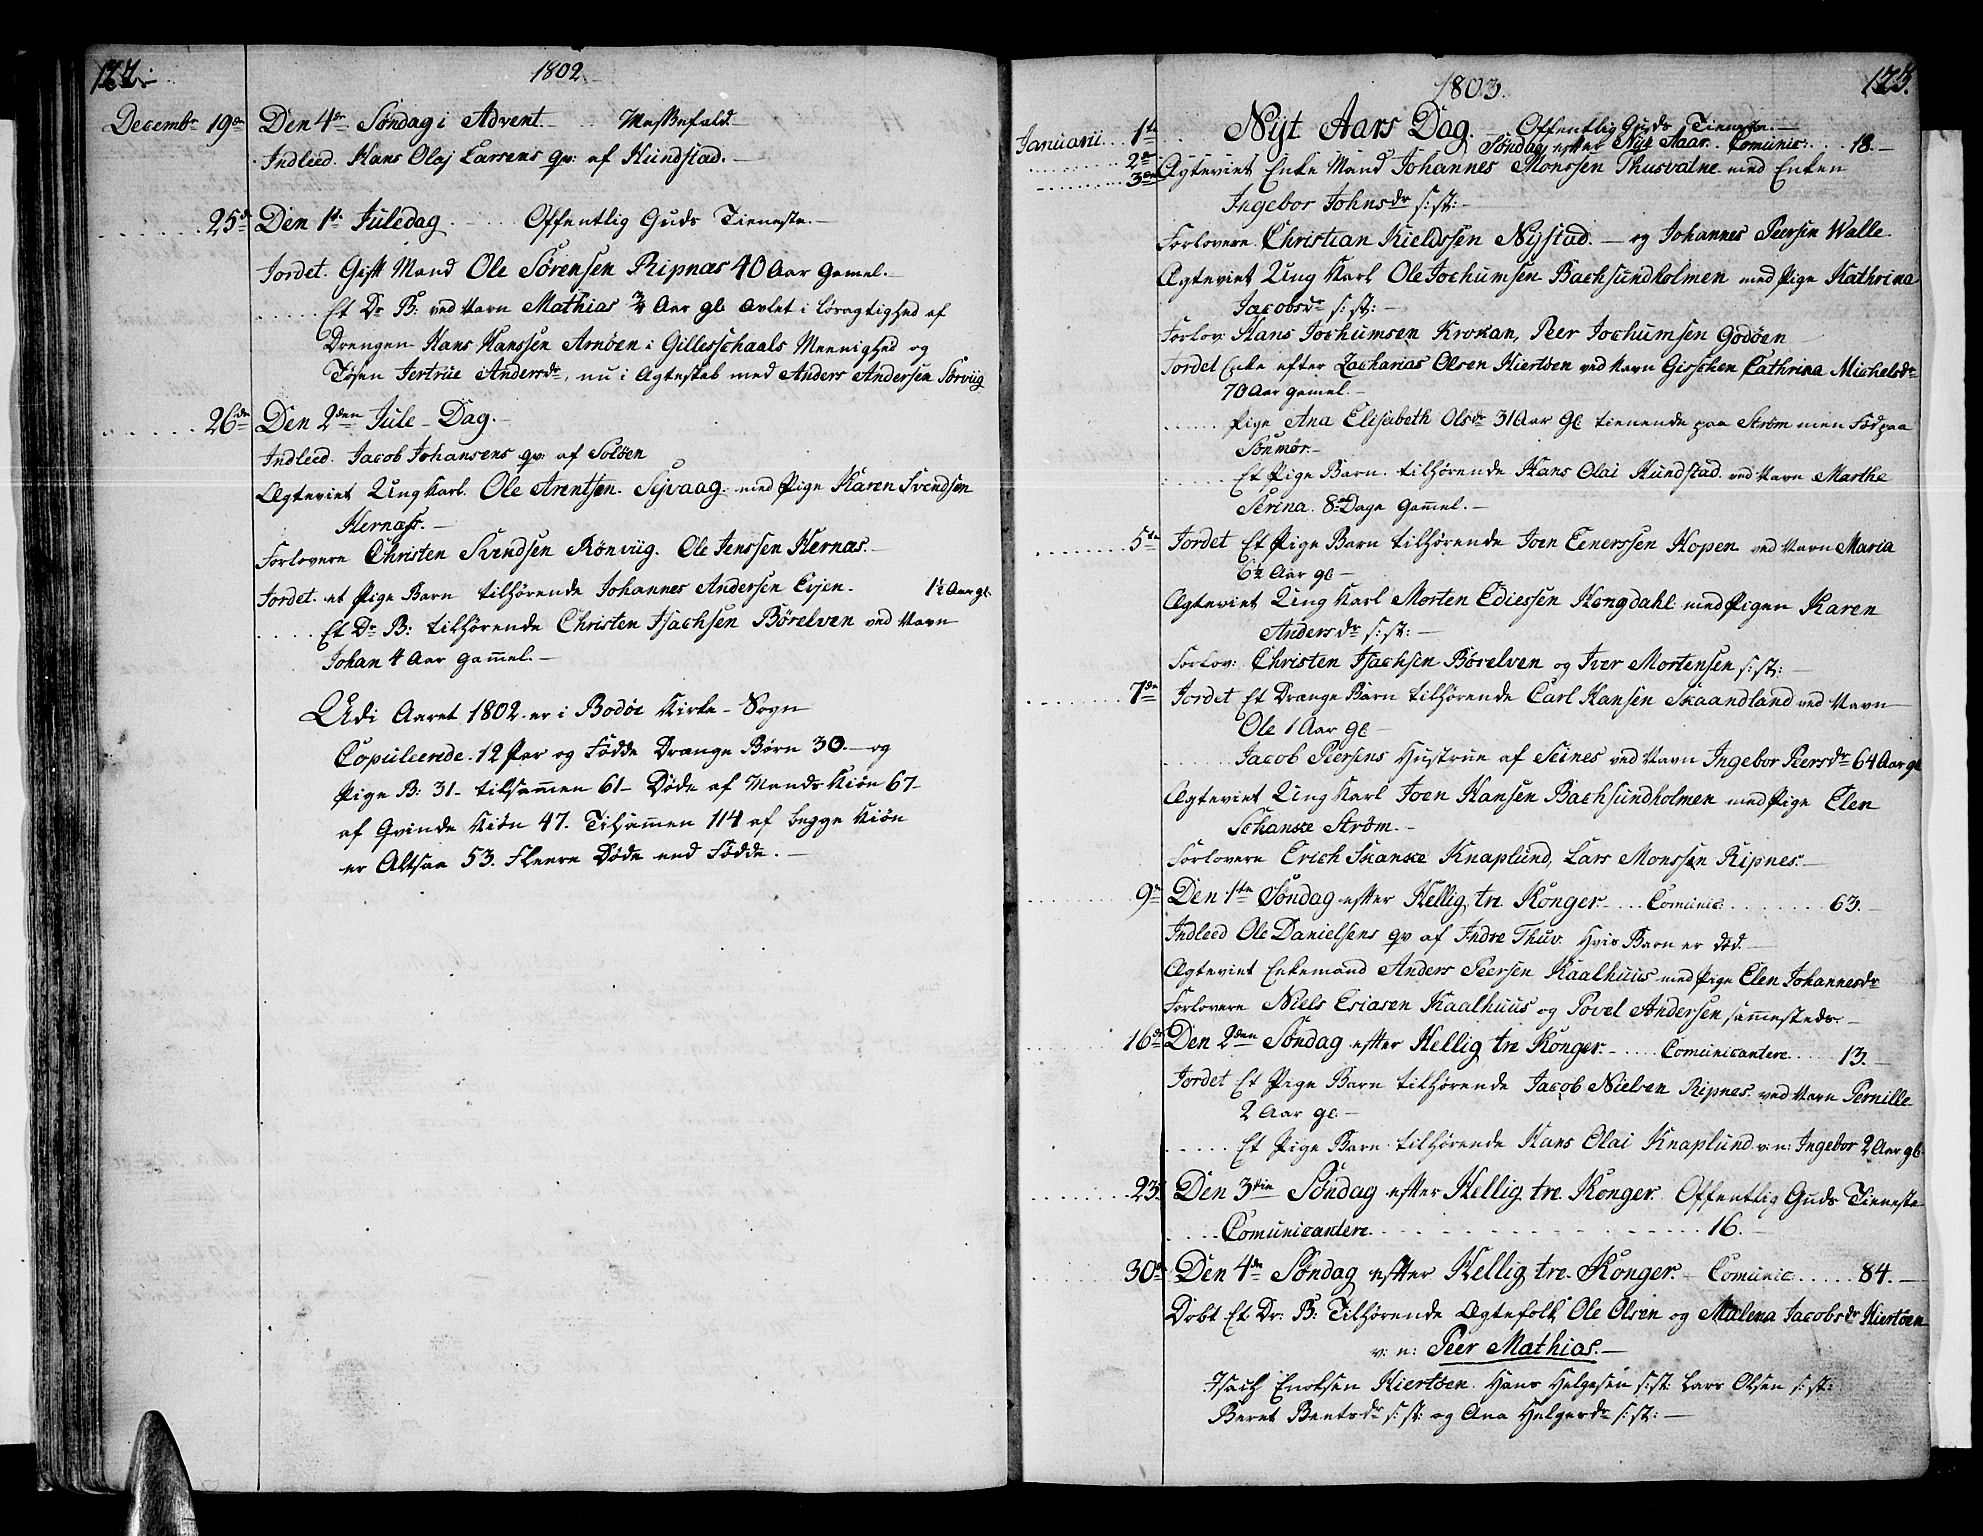 122.
1802
Decembr 19de Den 4de Søndag i Advent. Messefald.
Indleed. Hans Olaj Larsens qv: af Hundstad.
25de Den 1te Juledag. Offentlig Guds Tieneste.
Jordet. Gift Mand Ole Sørensen Ripnæs 40 Aar Gamel.
Et Dr B: ved Navn Mathias 3/4 Aar gl. avlet i Løsagtighed af
Drengen Hans Hanssen Arnøen i Gillesschaals Meenighed og
Tøsen Jertrue Andersdr, nu i Ægteskab med Anders Andersen Sørviig
26de Den 2den Jule-Dag.
Indleed. Jacob Johansens qv: af Soløen
Ægteviet Ung Karl. Ole Arentsen. Sejvaag. med Pige Karen Svendsen
Hernæss.
Forlovere Christen Svendsen Rønviig. Ole Jenssen Hernæs.
Jordet. et Pige Barn tilhørende Johannes Andersen Evjen. 1½ Aar gl.
Et Dr B: tilhørende Christen Isachsen Børelven ved Navn
Johan 4 Aar gammel.
Udi Aaret 1802 er i Bodøe Kirke-Sogn
Copuleerede. 12 Par og Fødde Drænge Børn 30. og
Pige B: 31 tilsammen 61 Døde af Mands Kiøn 67
af Qvinde Kiøn 47. Tilsammen 114 af begge Kiøn
er Altsaa 53. Fleere Døde end Fødde.
1803.
123.
Januarii 1te Nyt Aars Dag. Offentlig Guds Tieneste.
2de Søndag efter Nye Aar. Comunic: 18.
3de Ægteviet Enke Mand Johannes Monssen Thusvatne med Enken
Ingebor Johnsdr s: st:
Forlovere. Christian Kieldssen Nystad. og Johannes Peersen Walle
Ægteviet Ung Karl Ole Jochumsen Bachsundholmen med Pige Kathrina
Jacobsdr s: st:
Forlov Hans Jochumsen Krokan, Peer Jochumsen Godøen
Jordet Enke efter Zacharias Olsen Hiertøen ved Navn Gisschen Cathrina Michelsdr
70 Aar gamel.
Pige Ana Elisabeth Olsdr 31 Aar gl: tienende paa Strøm men Fød paa
Sønmør.
Et Pige Barn tilhørende Hans Olai Hundstad ved Navn Marthe
Serina. 8te Dage Gammel.
5te Jordet Et Pige Barn tilhørende Joen Eenerssen Hopen ved Navn Maria
6½ Aar gl
Ægteviet Ung Karl Morten Ediessen Hongdahl med Pigen Karen
Andersdr s: st:
Forlov: Christen Isachsen Børelven og Iver Mortensen s: st:
7de Jordet Et Drænge Barn tilhørende Carl Hansen Skaandland ved Navn
Ole 1 Aar gl
Jacob Peersens Hustrue af Seines ved Navn Ingebor Peersdr 64 Aar gl
Ægteviet Ung Karl Joen Hansen Bachsundholmen med Pige Elen
Schanke Strøm.
Forlovere Erich Skanke Knaplund, Lars Monssen Ripnes.
9de Den 1ste Søndag efter Hellig tre Konger. Comunic: 63.
Indleed Ole Danielsens qv af Indre Thuv. Hvis Barn er død.
Ægteviet Enkemand Anders Peersen Kaalhuus med Pige Elen Johannesdr
Forlovere Niels Esiasen Kaalhuus og Povel Andersen sammesteds.
16de Den 2den Søndag efter Hellig tre Konger. Comunicantere 13.
Jordet Et Pige Barn tilhørende Jacob Nielsen Ripnes ved Navn Pernille
2 Aar gl.
Et Pige Barn tilhørende Hans Olai Knaplund v: n: Ingebor 2 Aar gl
23. Den 3die Søndag efter Hellig tre Konger. Offentlig Guds Tieneste
Comunicantere. 16.
30de Den 4de Søndag efter Hellig tre Konger. Comunic 84.
Døbt Et Dr: B: Tilhørende Ægtefolk Ole Olsen og Malena Jacobsdr Hiertøen
v: n: Peer Mathias.
Isach Enoksen Hiertøen. Hans Helgesen s: st: Lars Olsen s: st:
Beret Bentsdr s: st: og Ana Helgesdr s: st: